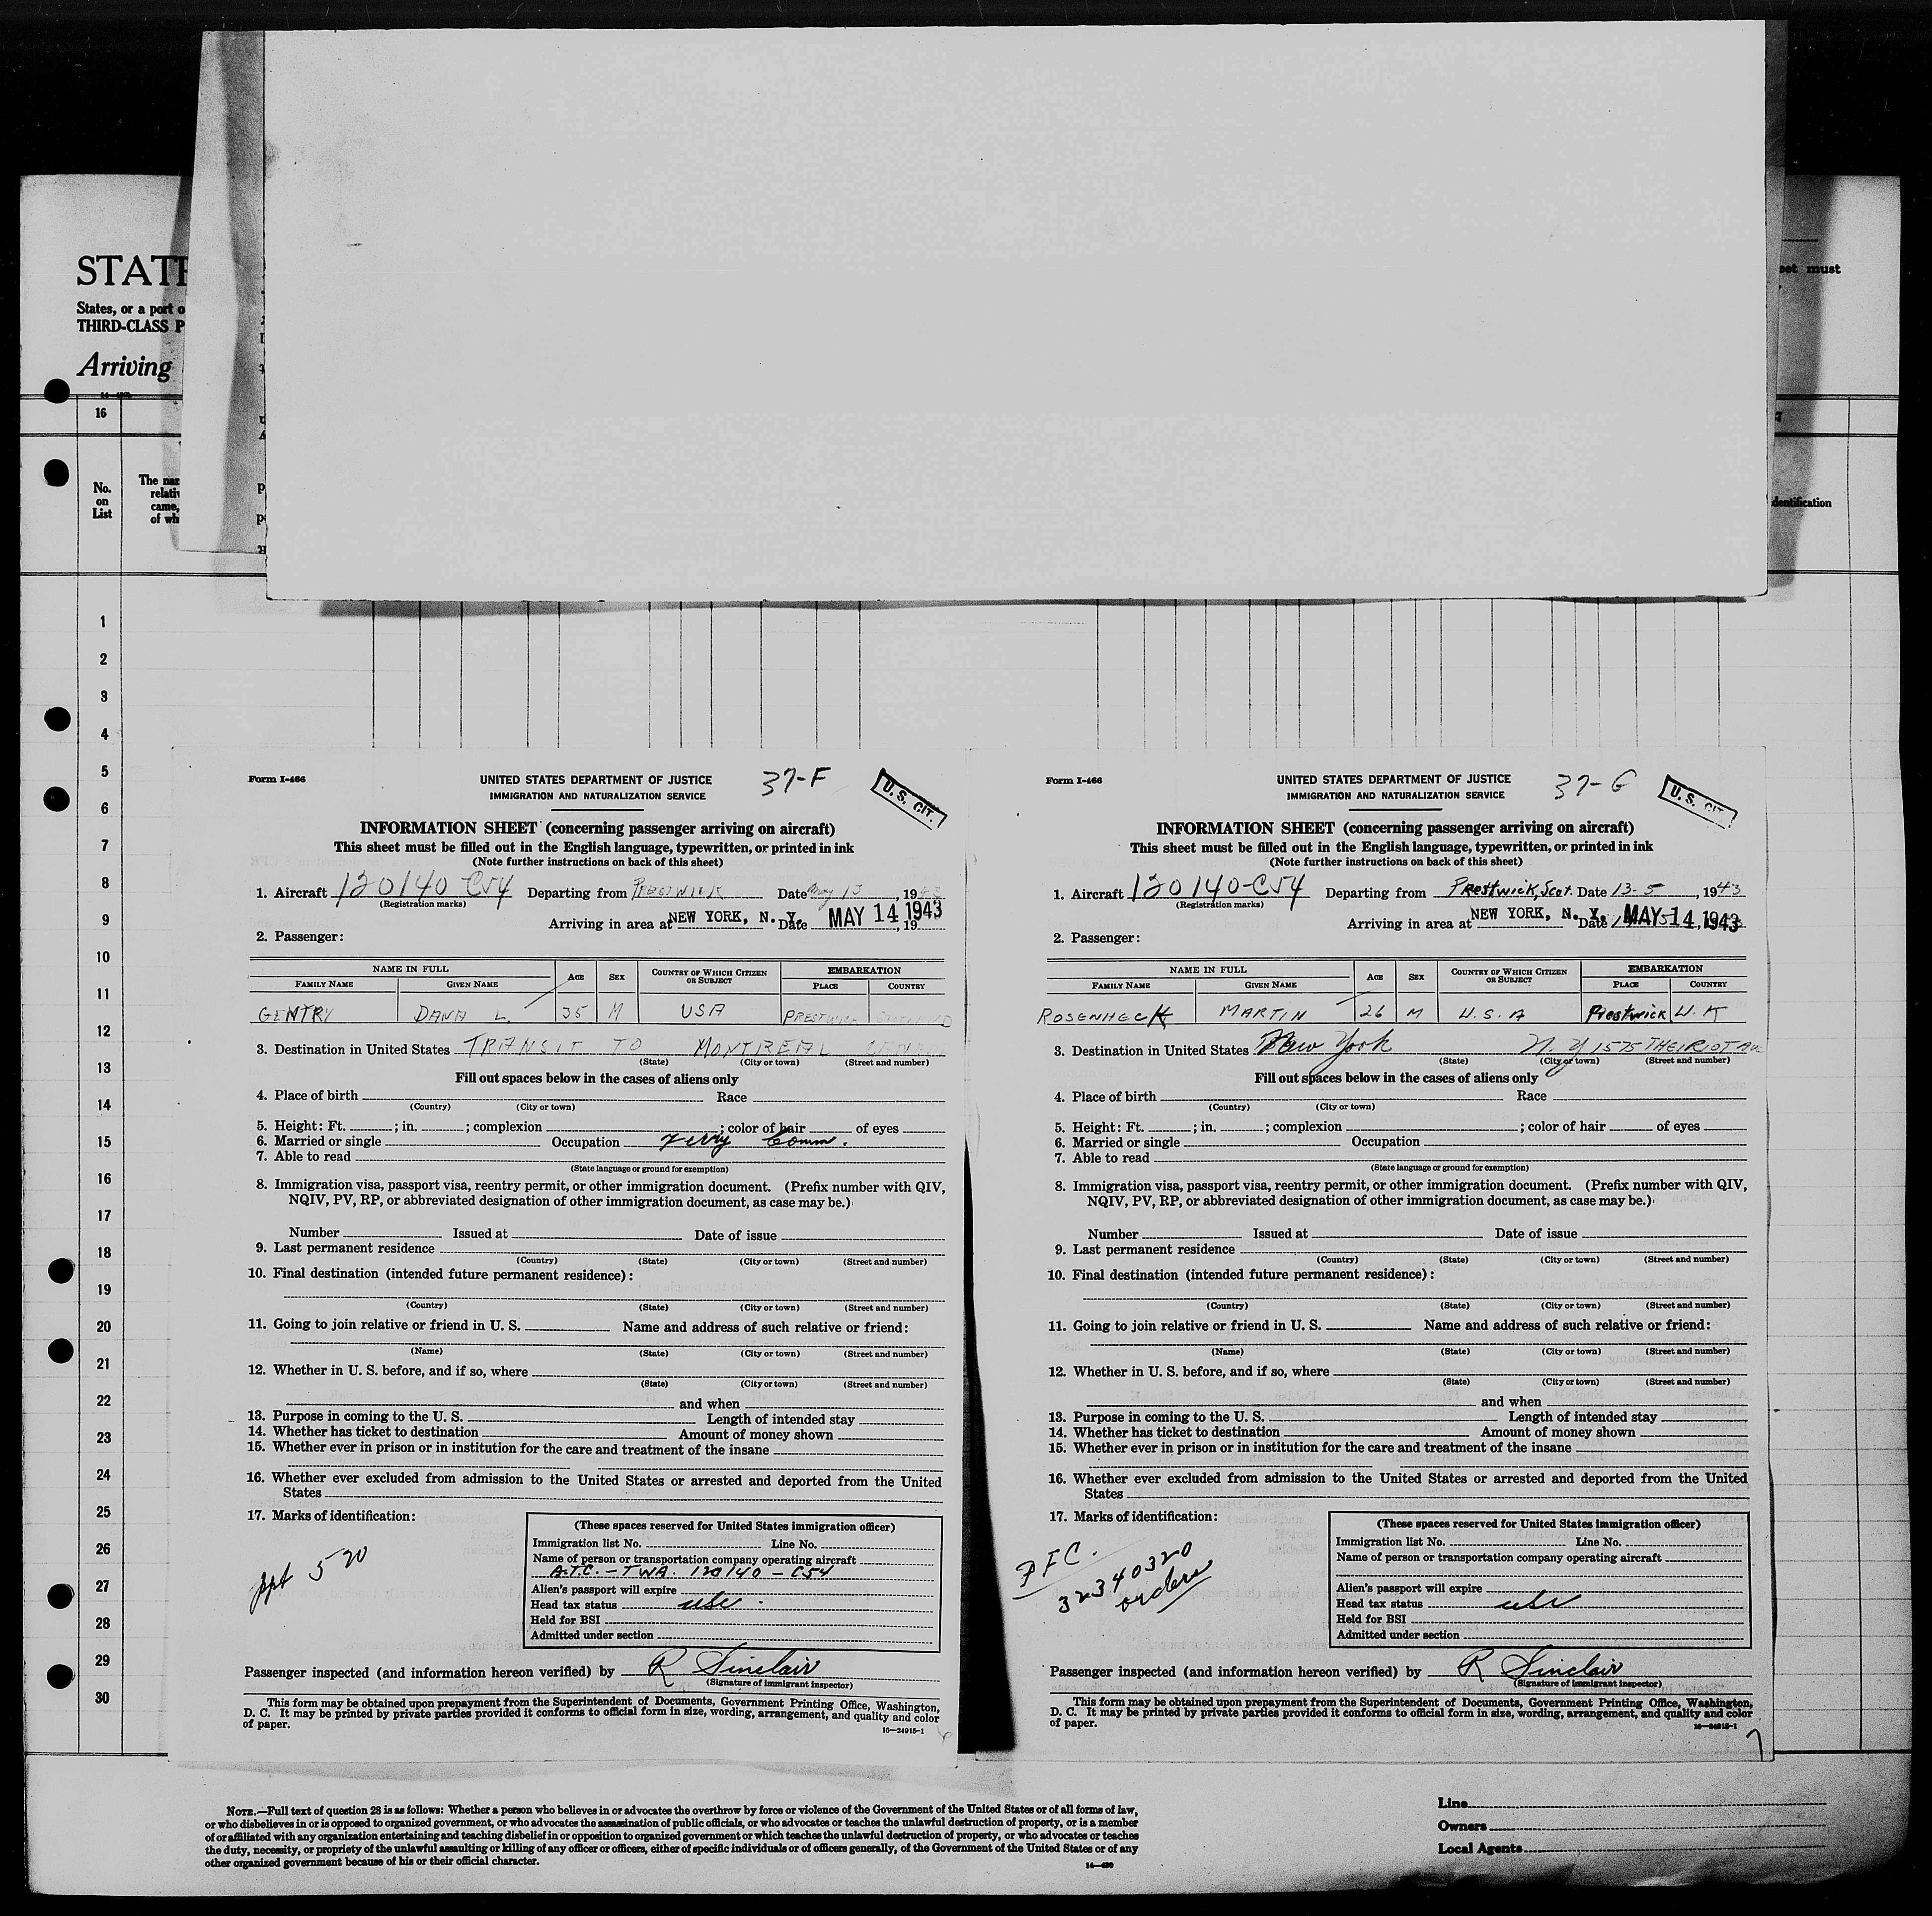 STATE
States, or a port o
THIRD-CLASS P
Arriving
16
No.
on
List
The nam
relativ
came,
of wh
eet must
dentification
1
2
3
4
5
6
7
8
9
10
11
12
13
14
15
16
17
18
19
20
21
22
23
24
25
26
27
28
29
30
Form I-466
UNITED STATES DEPARTMENT OF JUSTICE 37-F U. S. CIT.
IMMIGRATION AND NATURALIZATION SERVICE
INFORMATION SHEET (concerning passenger arriving on aircraft)
This sheet must be filled out in the English language, typewritten, or printed in ink
(Note further instructions on back of this sheet)
1. Aircraft 120140-C54 Departing from PRESTWICK Date May 13, 1943
(Registration marks)
Arriving in area at NEW YORK, N. Y. Date MAY 14 1943, 19
2. Passenger:
NAME IN FULL AGE SEX COUNTRY OF WHICH CITIZEN OR SUBJECT EMBARKATION
FAMILY NAME GIVEN NAME PLACE COUNTRY
GENTRY DANA L. 35 M USA PRESTWICK SCOTLAND
3. Destination in United States TRANSIT TO MONTREAL CANADA
(State) (City or town) (Street and number)
Fill out spaces below in the cases of aliens only
4. Place of birth Race
(Country) (City or town)
5. Height: Ft. ; in. ; complexion ; color of hair of eyes
6. Married or single Occupation Ferry Comm.
7. Able to read
(State language or ground for exemption)
8. Immigration visa, passport visa, reentry permit, or other immigration document. (Prefix number with QIV,
NQIV, PV, RP, or abbreviated designation of other immigration document, as case may be.)
Number Issued at Date of issue
9. Last permanent residence
(Country) (State) (City or town) (Street and number)
10. Final destination (intended future permanent residence):
(Country) (State) (City or town) (Street and number)
11. Going to join relative or friend in U. S. Name and address of such relative or friend:
(Name) (State) (City or town) (Street and number)
12. Whether in U. S. before, and if so, where
(State) (City or town) (Street and number)
and when
13. Purpose in coming to the U. S. Length of intended stay
14. Whether has ticket to destination Amount of money shown
15. Whether ever in prison or in institution for the care and treatment of the insane
16. Whether ever excluded from admission to the United States or arrested and deported from the United
States
17. Marks of identification:
ppt 520
(These spaces reserved for United States immigration officer)
Immigration list No. Line No.
Name of person or transportation company operating aircraft
A.T.C. - TWA. 120140 - C54
Alien's passport will expire
Head tax status usc
Held for BSI
Admitted under section
Passenger inspected (and information hereon verified) by R Sinclair
(Signature of immigrant inspector)
This form may be obtained upon prepayment from the Superintendent of Documents, Government Printing Office, Washington,
D. C. It may be printed by private parties provided it conforms to official form in size, wording, arrangement, and quality and color
of paper. 16—24915-1
6
Form I-466
UNITED STATES DEPARTMENT OF JUSTICE 37-G U. S. CIT.
IMMIGRATION AND NATURALIZATION SERVICE
INFORMATION SHEET (concerning passenger arriving on aircraft)
This sheet must be filled out in the English language, typewritten, or printed in ink
(Note further instructions on back of this sheet)
1. Aircraft 120140-C54 Departing from Prestwick, Scot. Date 13-5, 1943
(Registration marks)
Arriving in area at NEW YORK, N. Y. Date MAY 14, 1943
2. Passenger:
NAME IN FULL AGE SEX COUNTRY OF WHICH CITIZEN OR SUBJECT EMBARKATION
FAMILY NAME GIVEN NAME PLACE COUNTRY
ROSENHECK MARTIN 26 M U.S.A Prestwick U.K
3. Destination in United States New York N.Y 1575 THEIRIOT AV
(State) (City or town) (Street and number)
Fill out spaces below in the cases of aliens only
4. Place of birth Race
(Country) (City or town)
5. Height: Ft. ; in. ; complexion ; color of hair of eyes
6. Married or single Occupation
7. Able to read
(State language or ground for exemption)
8. Immigration visa, passport visa, reentry permit, or other immigration document. (Prefix number with QIV,
NQIV, PV, RP, or abbreviated designation of other immigration document, as case may be.)
Number Issued at Date of issue
9. Last permanent residence
(Country) (State) (City or town) (Street and number)
10. Final destination (intended future permanent residence):
(Country) (State) (City or town) (Street and number)
11. Going to join relative or friend in U. S. Name and address of such relative or friend:
(Name) (State) (City or town) (Street and number)
12. Whether in U. S. before, and if so, where
(State) (City or town) (Street and number)
and when
13. Purpose in coming to the U. S. Length of intended stay
14. Whether has ticket to destination Amount of money shown
15. Whether ever in prison or in institution for the care and treatment of the insane
16. Whether ever excluded from admission to the United States or arrested and deported from the United
States
17. Marks of identification:
PFC.
32340320
orders
(These spaces reserved for United States immigration officer)
Immigration list No. Line No.
Name of person or transportation company operating aircraft
Alien's passport will expire
Head tax status usc
Held for BSI
Admitted under section
Passenger inspected (and information hereon verified) by R Sinclair
(Signature of immigrant inspector)
This form may be obtained upon prepayment from the Superintendent of Documents, Government Printing Office, Washington,
D. C. It may be printed by private parties provided it conforms to official form in size, wording, arrangement, and quality and color
of paper. 16—24915-1
7
NOTE.—Full text of question 28 is as follows: Whether a person who believes in or advocates the overthrow by force or violence of the Government of the United States or of all forms of law,
or who disbelieves in or is opposed to organized government, or who advocates the assassination of public officials, or who advocates or teaches the unlawful destruction of property, or is a member
of or affiliated with any organization entertaining and teaching disbelief in or opposition to organized government or which teaches the unlawful destruction of property, or who advocates or teaches
the duty, necessity, or propriety of the unlawful assaulting or killing of any officer or officers, either of specific individuals or of officers generally, of the Government of the United States or of any
other organized government because of his or their official character. 14—430
Line
Owners
Local Agents